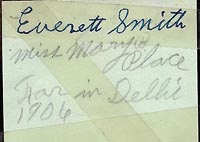 Everett Smith
Miss Mary
Place
in Delhi
1906